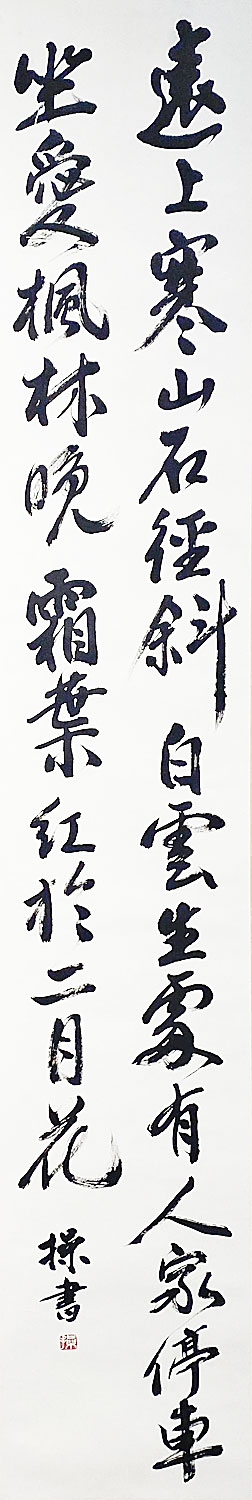 遠上寒山石徑斜白雲生處有人家停車
坐愛楓林晚霜葉紅於二月花
操書